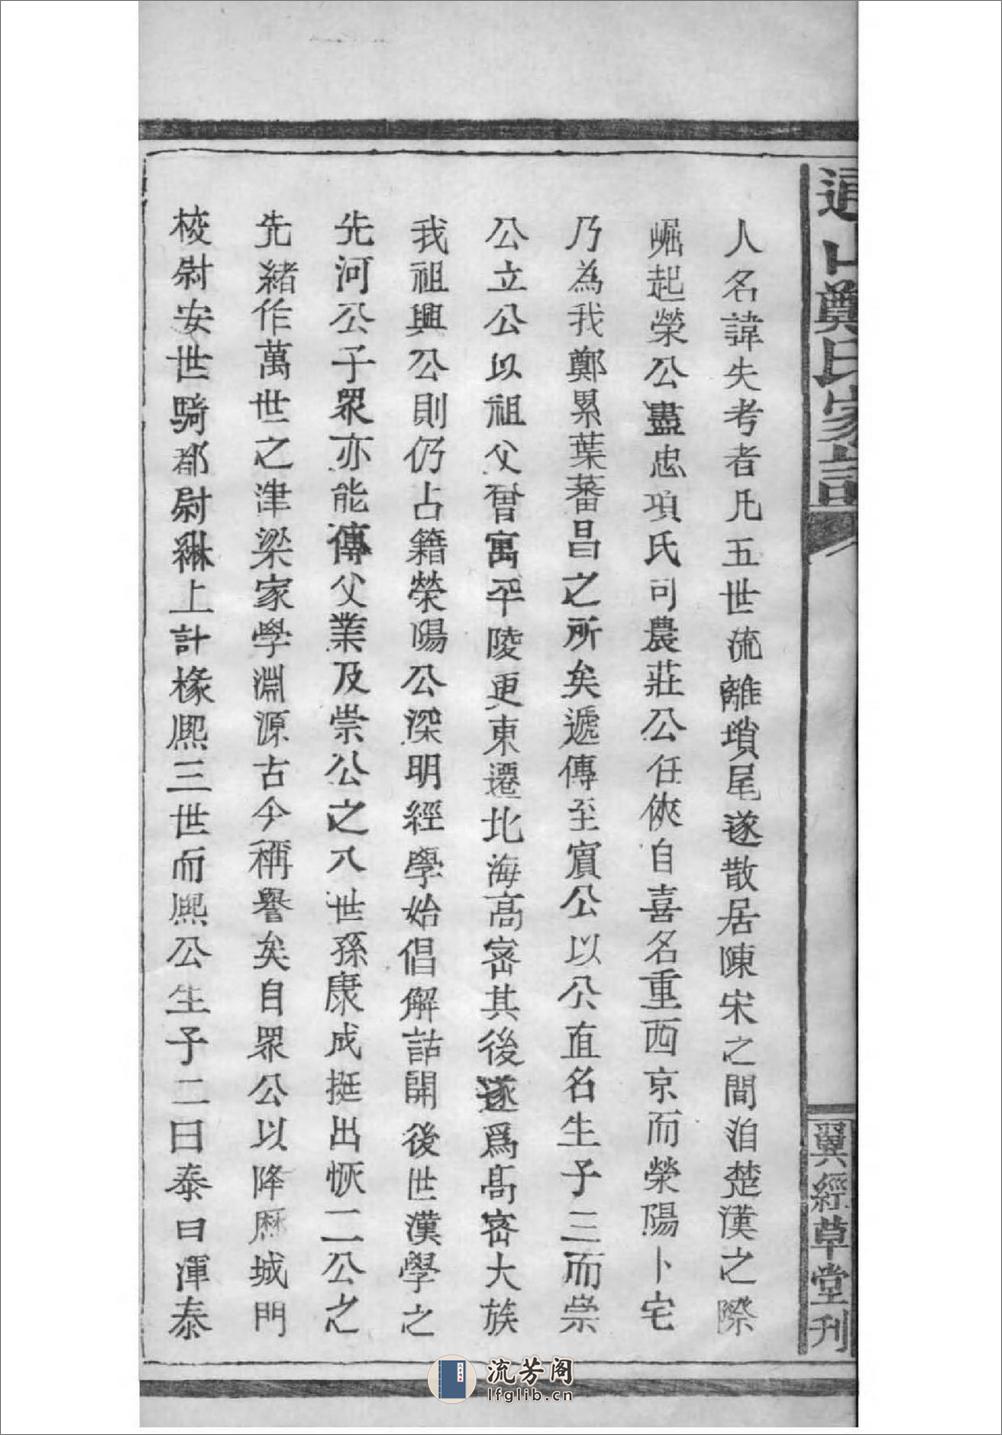 通山鄭氏家譜
翼經草堂刊
人名諱失考者凡五世流離瑣尾遂散居陳宋之間洎楚漢之際
崛起榮公盡忠項氏司農莊公任俠自喜名重西京而榮陽卜宅
乃為我鄭累葉蕃昌之所矣遞傳至賓公以公直名生子三而崇
公立公以祖父曾寓平陵更東遷北海高密其後遂爲高密大族
我祖興公則仍占籍榮陽公深明經學始倡解詁開後世漢學之
先河公子眾亦能傳父業及崇公之八世孫康成挺出恢二公之
先緒作萬世之津梁家學淵源古今稱譽矣自眾公以降歷城門
校尉安世騎都尉綝上計椽熙三世而熙公生子二曰泰曰渾泰
流芳阁
lfglib.cn